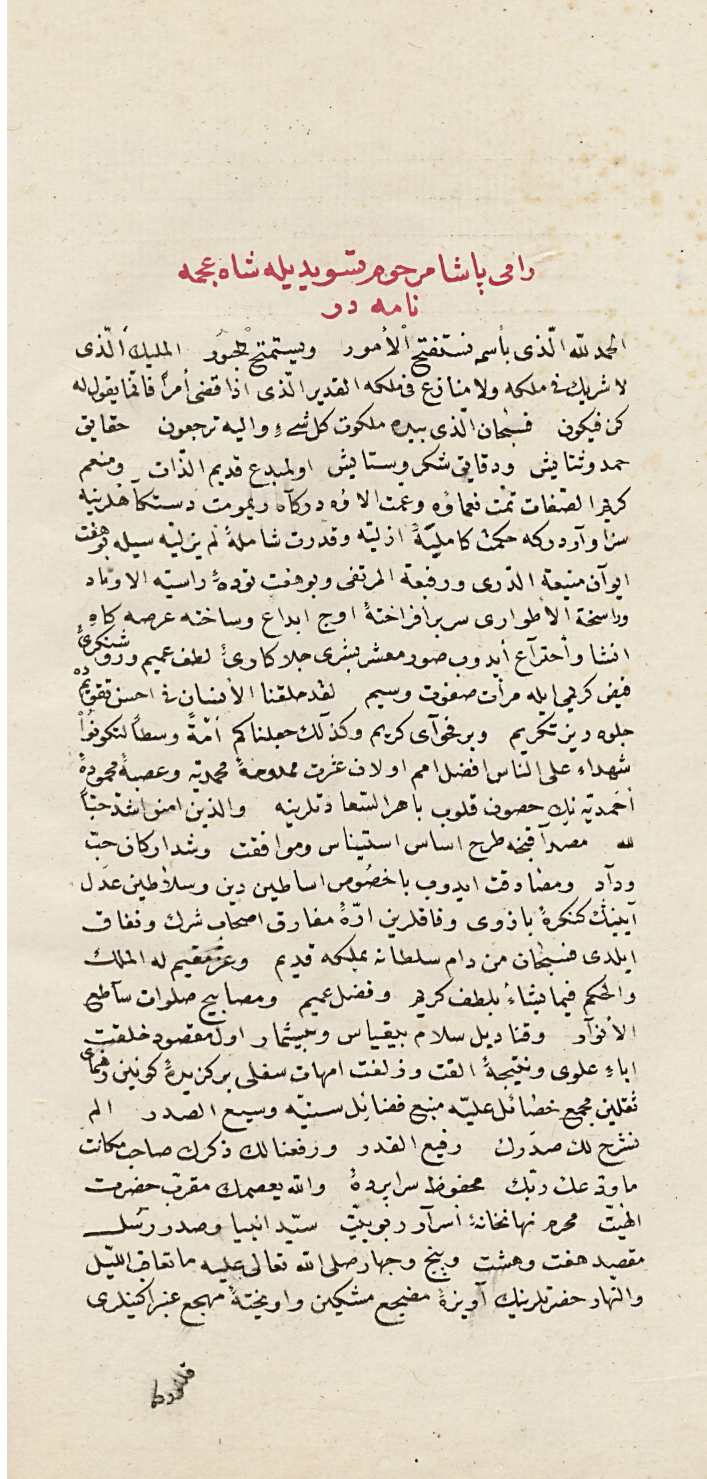 رامی پاشا مرحوم تسویدیله شاه عجمه
نامه در
الحمد لله الّذی بأسمه نستفتح الأمور ویستمنح الملیك الّذی
لا شریك فی ملکه ولا منازع فی ملکه القدیر الّذی اذا قضی أمراً فانّما یقول له
کن فیکون فسبحان الّذی بیده ملکوت کل شیء والیه ترجعون حقایق
حمد وثنایش ودقایق شکر وستایش اولمبدع قدیم الذّات ومنعم
کریم الصّفات تمّت نعماؤه وعمت الاؤه درکاه دیمومت دستکاهلرینه
سزا وآودرکه حکمت کاملهٔ ازلیّه وقدرت شاملهٔ لم یزلیّه سیله بوهفت
ایوان منیعة الذّری ورفیعة المرتقی وبوهفت تودهٔ راسیه الاوتاد
وراسخة الأطواری سربرافراختهٔ اوج ابداع وساخته عرصه کاهِ
انشا وأختراع أیدوب صور معشر بشری جلاکاریٔ لطف عمیم وروشنکریٔ
فیض کریمی ایله مرأت صفوت وسیم لقد خلقنا الأنسان فی احسن تقویم ده
جلوه ریز تکریم وبرفحوآی کریم وکذلك جعلناکم أمّةً وسطاً لتکونوا
شهداء علی الناس افضل امم اولان عزت ممدوحهٔ محمدیّه وعصبهٔ محمودهٔ
أحمدیّه نك حصون قلوب باهر السّعادتلرینه والذین امنو اشدّ حبّاً
لله مصداقنجه طرح اساس استیناس وموافقت وشد ارکان حبّ
وداد ومصادقت ایدوب باخصوص اساطین دین وسلاطین عدل
آیینك کنکرهٔ بازوی وفاقلرین ارّهٔ مفارق اصحاب شرك ونفاق
ایلدی فسبحان من دام سلطانه بملکه قدیم وعزّ مقیم له الملك
والحکم فیما یشاء بلطف کریم وفضل عمیم ومصابیح صلوات ساطع
الأنوار وقنادیل سلام بیقیاس وبیشمار اول مقصود خلقت
اباءِ علوی ونتیجهٔ القت وزلفت امهات سفلی برکزیدهٔ کونین رهنمای
ثقلین مجمع خصائل علیّه منبع فضائل سنیّه وسیع الصدر الم
نشرح لك صدرك رفیع القدر ورفعنا لك ذکرك صاحب مکانت
ما ودّعك ربّك محفوظ سراپردهٔ والله یعصمك مقرّب حضرت
الهیّت محرم نهانخانهٔ أسرار ربوبیّت سیّد انبیا وصدر رسل
مقصد هفت وهشت وپنج وچهار صلی الله تعالی علیه ما تعاقب اللیل
والنهار حضرتلرینك آویزهٔ مضجع مشکین واویختهٔ مهجع عنبر آکینلری